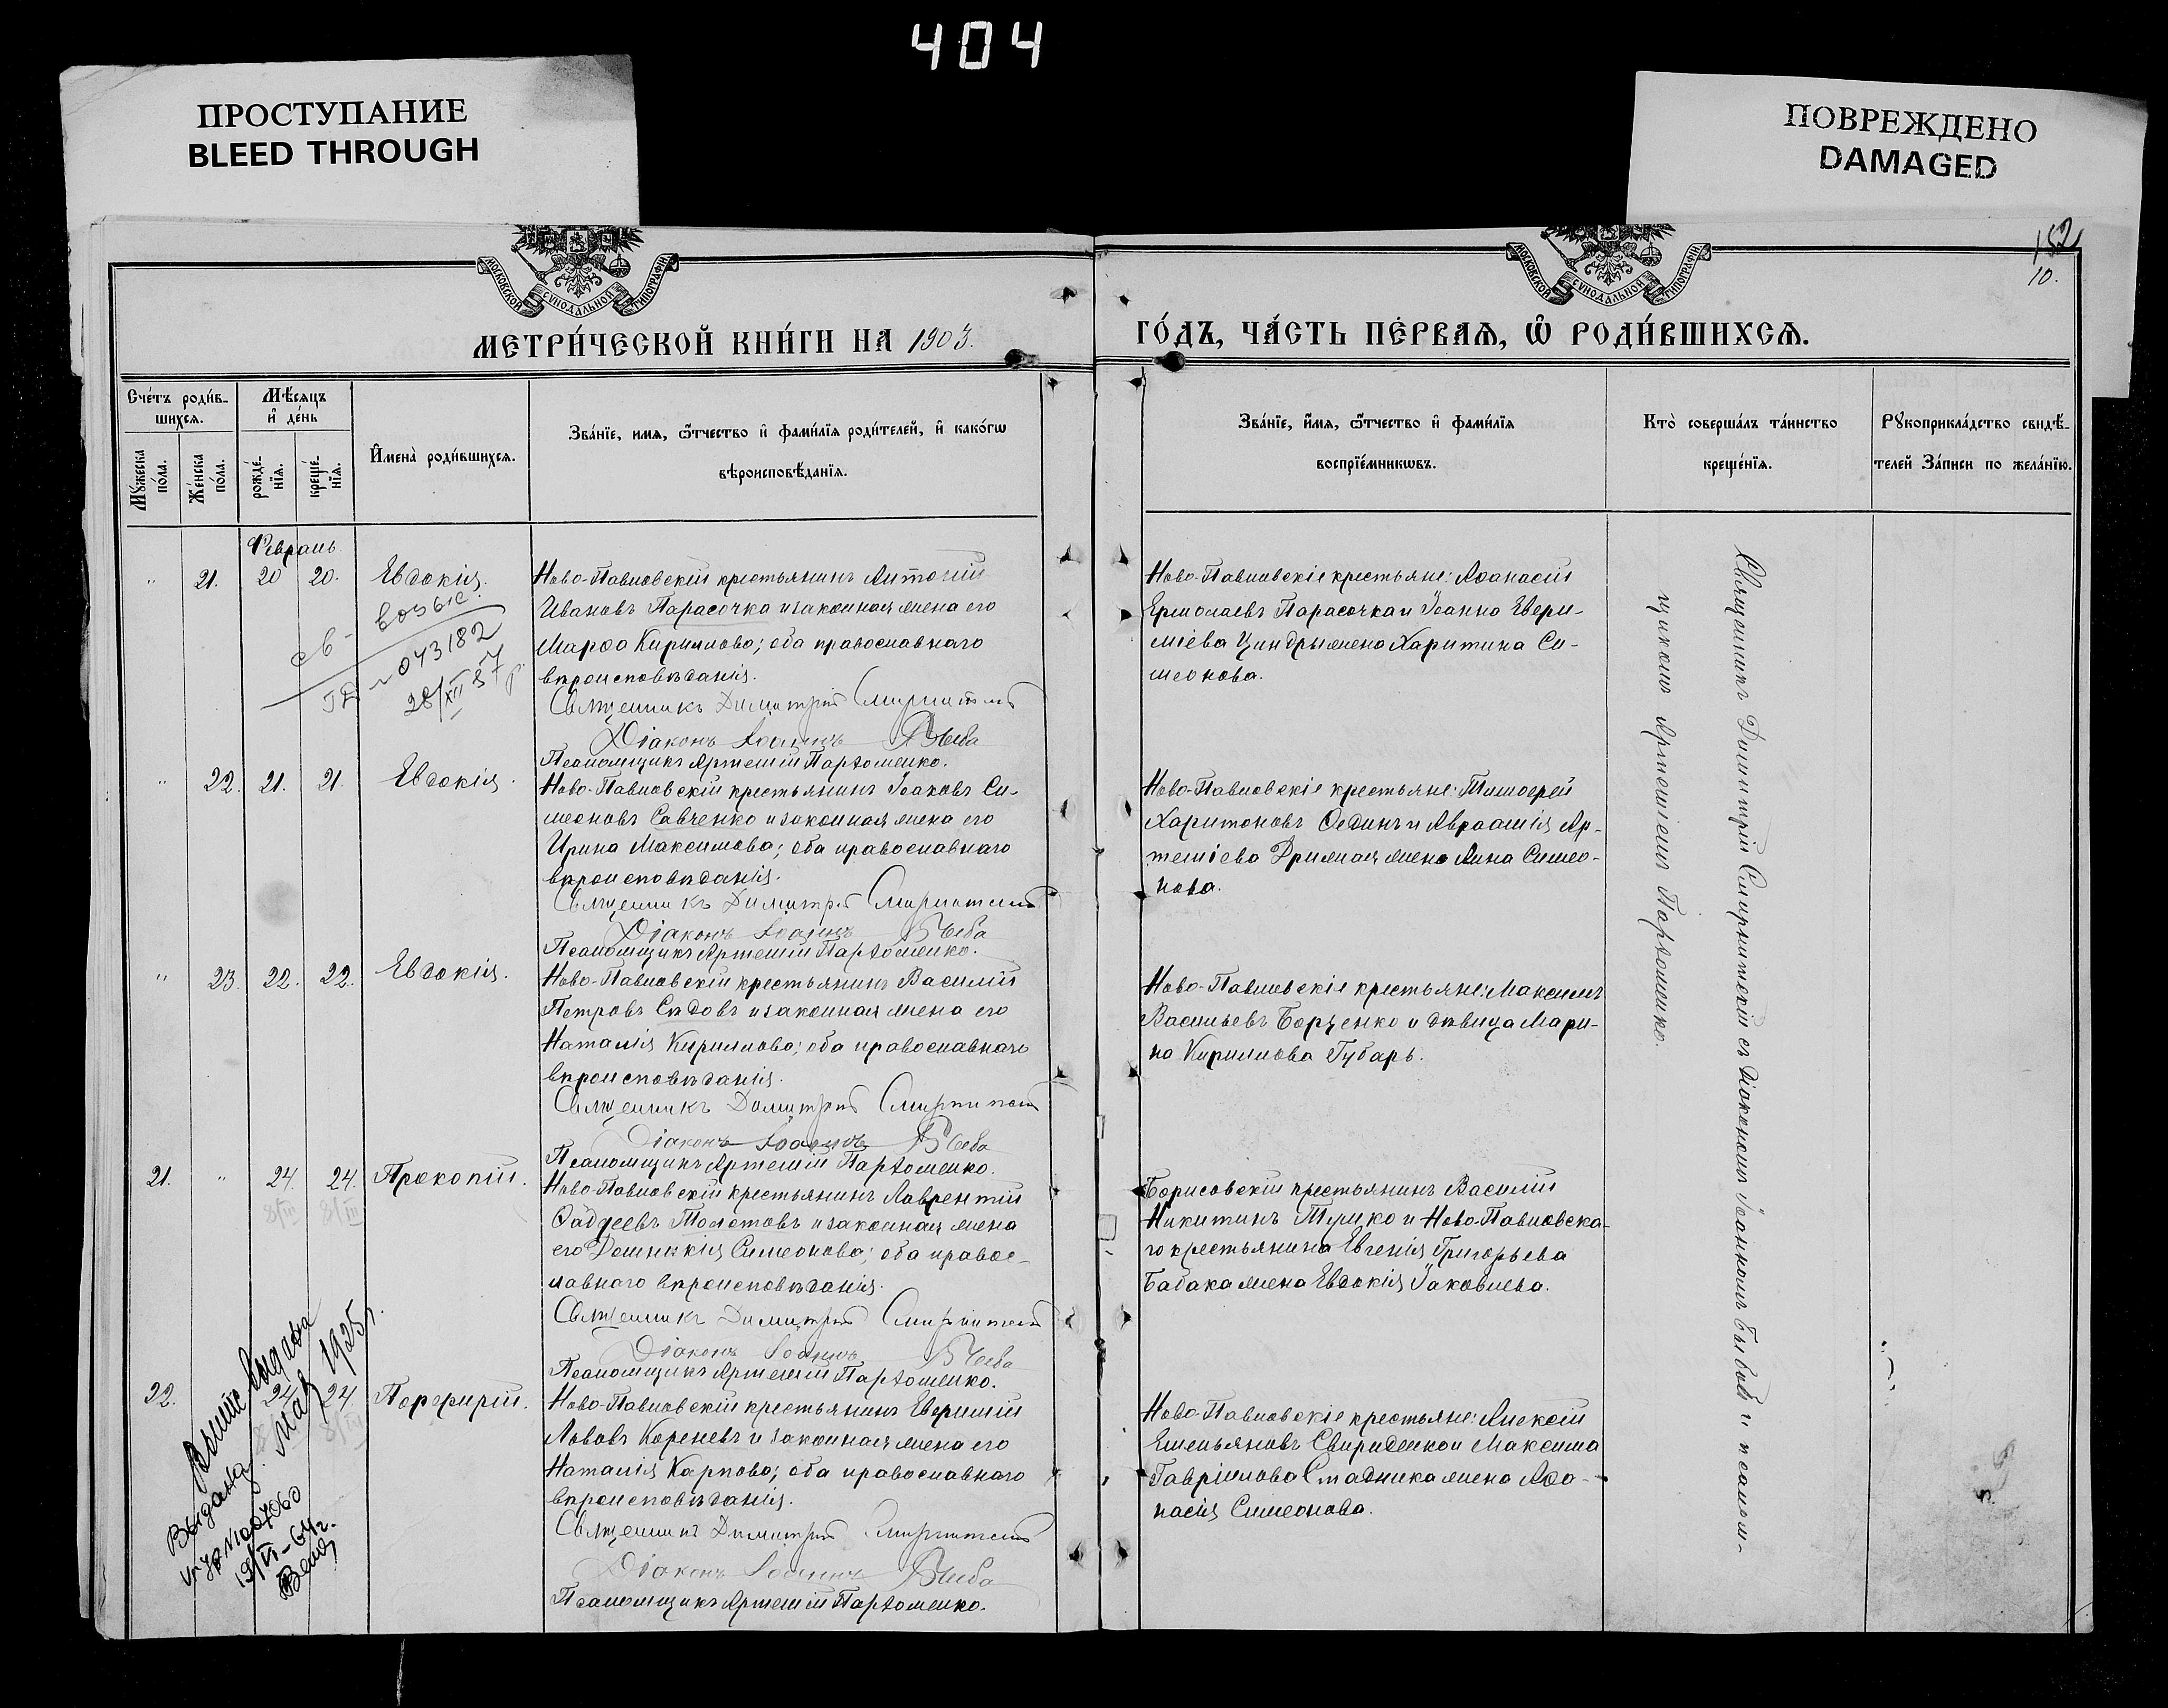 404
ПРОСТУПАНИЕ
BLEED THROUGH
ПОВРЕЖДЕНО
DAMAGED
МОСКОВСКОЙ СУНОДАЛЬНОЙ ТИПОГРАФІИ
МОСКОВСКОЙ СУНОДАЛЬНОЙ ТИПОГРАФІИ
182
10.
МЕТРИ́ЧЕСКОЙ КНИ́ГИ НА 1903.
ГО́ДЪ, ЧА́СТЬ ПЕ́РВАѦ, Ѽ РОДИ́ВШИХСѦ.
Сче́тъ роди́в-
шихсѧ.
Мꙋ́жеска по́ла.
Же́нска по́ла.
Мѣ́сѧцъ
и҆ де́нь
рожде́-
нїѧ.
креще́-
нїѧ.
И҆мена̀ роди́вшихсѧ.
Зва́нїе, имѧ, ѿтчество и҆ фами́лїѧ роди́телей, и҆ како́гѡ
вѣроисповѣ́данїѧ.
Зва́нїе, и҆мѧ, ѿтчество и҆ фами́лїѧ
воспрїе́мникѡвъ.
Кто̀ соверша́лъ та́инство
креще́нїѧ.
Рꙋкоприкла́дство свидѣ́-
телей За́писи по жела́нїю.
Февраль
" 21. 20 20. Евдокія.
Ново-Павловскій крестьянинъ Антоній
Ивановъ Парасочка и законная жена его
Марѳа Кирилова; оба православнаго
вѣроисповѣданія.
Священникъ Димитрій Смирнитскій
Діаконъ Іоаннъ
Псаломщикъ Артемій Пархоменко.
Ново-Павловскіе крестьяне: Аѳанасій
Ермолаевъ Парасочка и Іоанна Евѳи-
міева Циндры жена Харитина Си-
меонова.
св-
043182
28/XII 57 г.
" 22. 21. 21. Евдокія.
Ново-Павловскій крестьянинъ Іоаковъ Си-
меоновъ Савченко и законная жена его
Ирина Максимова; оба православнаго
вѣроисповѣданія.
Священникъ Димитрій Смирнитскій
Діаконъ Іоаннъ
Псаломщикъ Артемій Пархоменко.
Ново-Павловскіе крестьяне: Тимоѳей
Харитоновъ Ѳединъ и Авраамія Ар-
теміева жена Анна Симео-
нова.
" 23. 22. 22. Евдокія.
Ново-Павловскій крестьянинъ Василій
Петровъ Сѣдовъ и законная жена его
Наталія Кирилова; оба православнаго
вѣроисповѣданія.
Священникъ Димитрій Смирнитскій
Діаконъ Іоаннъ
Псаломщикъ Артемій Пархоменко.
Ново-Павловскіе крестьяне: Максимъ
Васильевъ Борценко и дѣвица Мари-
на Кирилова Губарь.
21. " 24. 24. Прокопій.
8/III 8/III
Ново-Павловскій крестьянинъ Лаврентій
Ѳаддеевъ Толстовъ и законная жена
его Домникія Симеонова; оба правос-
лавнаго вѣроисповѣданія.
Священникъ Димитрій Смирнитскій
Діаконъ Іоаннъ
Псаломщикъ Артемій Пархоменко.
Борисовскій крестьянинъ Василій
Никитинъ и Ново-Павловска-
го крестьянина Евгенія Григорьева
Бабака жена Евдокія Іаковлева.
22. 24 24 Порфирій.
Ново-Павловскій крестьянинъ Евѳимій
Львовъ Кореневъ и законная жена его
Наталія Карпова; оба православнаго
вѣроисповѣданія.
Священникъ Димитрій Смирнитскій
Діаконъ Іоаннъ
Псаломщикъ Артемій Пархоменко.
Ново-Павловскіе крестьяне: Алексій
Емельяновъ Свириденко и Максима
Гавріилова Стадника жена Аѳа-
насія Симеонова.
Выпись выдана
мая 1925 г.
Выдана
19/VI-64 г.
Священникъ Димитрій Смирнитскій съ діакономъ Іоанномъ и псалом-
щикомъ Артеміемъ Пархоменко.